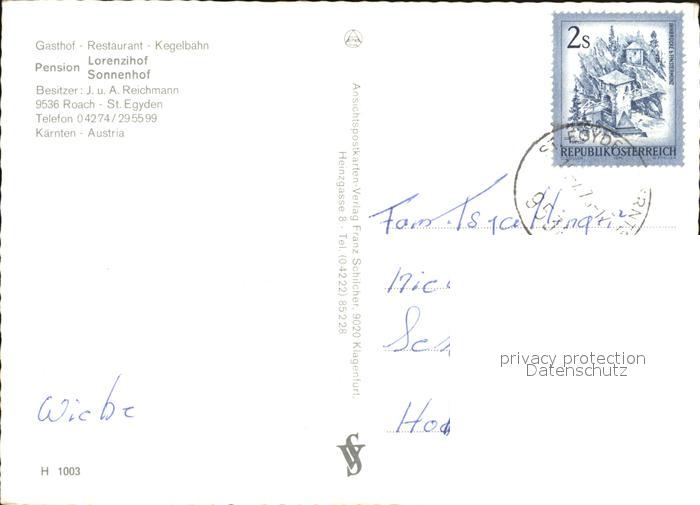 Gasthof - Restaurant - Kegelbahn
Pension Lorenzihof
Sonnenhof
Besitzer: J. u. A. Reichmann
9536 Roach - St. Egyden
Telefon 04274/295599
Kärnten - Austria
Wiebe
H 1003
Ansichtspostkarten-Verlag Franz Schilcher, 9020 Klagenfurt,
Heinzgasse 8 - Tel. (04222) 85228
2s
REPUBLIK ÖSTERREICH
ST. EGYDEN
Fam.
privacy protection
Datenschutz